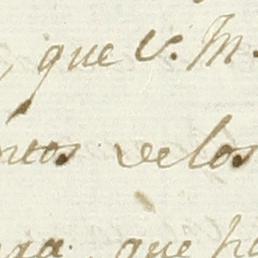 , que V. M.
ntos de los
que